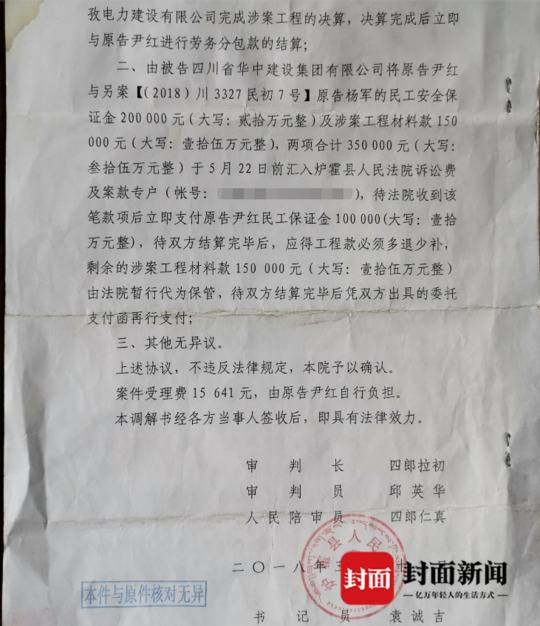 孜电力建设有限公司完成涉案工程的决算，决算完成后立即
与原告尹红进行劳务分包款的结算;
二、由被告四川省华中建设集团有限公司将原告尹红
与另案【(2018)川3327民初7号】原告杨军的民工安全保
证金200000元(大写：贰拾万元整)及涉案工程材料款150
000元(大写：壹拾伍万元整)，两项合计350000元(大写：
叁拾伍万元整)于5月22日前汇入炉霍县人民法院诉讼费
及案款专户(帐号：
)，待法院收到该
笔款项后立即支付原告尹红民工保证金100000(大写：壹拾
万元整)，待双方结算完毕后，应得工程款必须多退少补，
剩余的涉案工程材料款150 000元(大写：壹拾伍万元整)
由法院暂行代为保管，待双方结算完毕后凭双方出具的委托
支付函再行支付;
三、其他无异议。
上述协议，不违反法律规定，本院予以确认。
案件受理费15 641元，由原告尹红自行负担。
本调解书经各方当事人签收后，即具有法律效力。
审判长 四郎拉初
审判员 邱英华
人民陪审员 四郎仁真
二〇一八年
本件与原件核对无异
书记员 袁诚吉
封面
封面新闻
亿万年轻人的生活方式